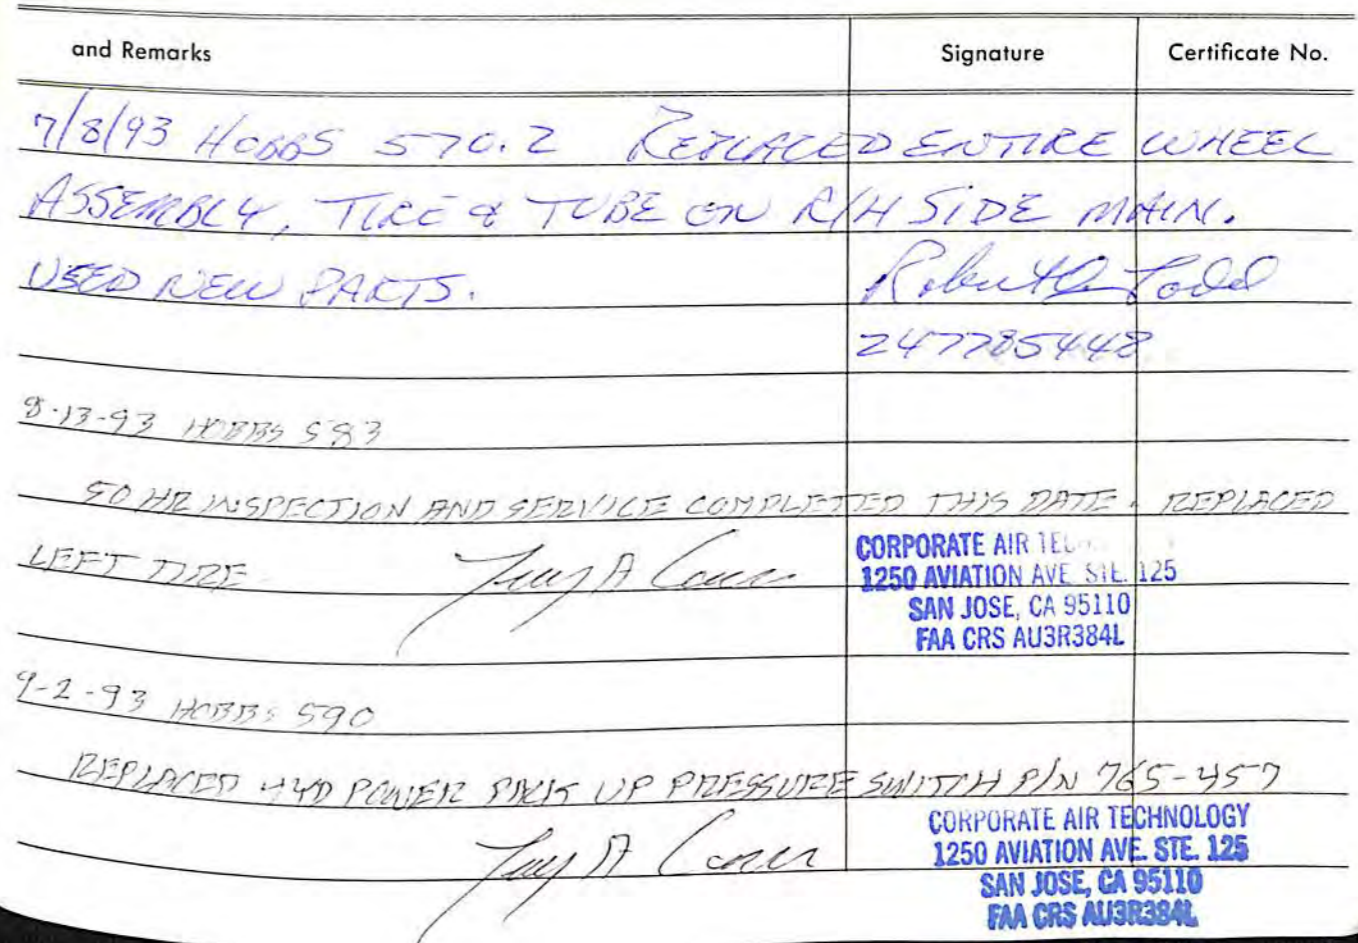 and Remarks Signature Certificate No.
7/8/93 HOBBS 570.2 REPLACED ENTIRE WHEEL
ASSEMBLY, TIRE & TUBE ON R/H SIDE MAIN.
USED NEW PARTS. Robert Todd
247785448
8-13-93 HOBBS 583
50 HR INSPECTION AND SERVICE COMPLETED THIS DATE. REPLACED
LEFT TIRE
CORPORATE AIR
1250 AVIATION AVE. STE. 125
SAN JOSE, CA 95110
FAA CRS AU3R384L
9-2-93 HOBBS 590
REPLACED HYD POWER PACK UP PRESSURE SWITCH P/N 765-457
CORPORATE AIR TECHNOLOGY
1250 AVIATION AVE. STE. 125
SAN JOSE, CA 95110
FAA CRS AU3R384L